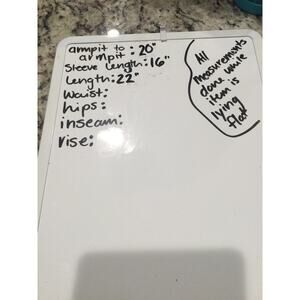 armpit to : 20"
armpit
Sleeve Length: 16"
Length: 22"
Waist:
hips:
inseam:
rise:
All
measurements
done while
item is
lying
flat